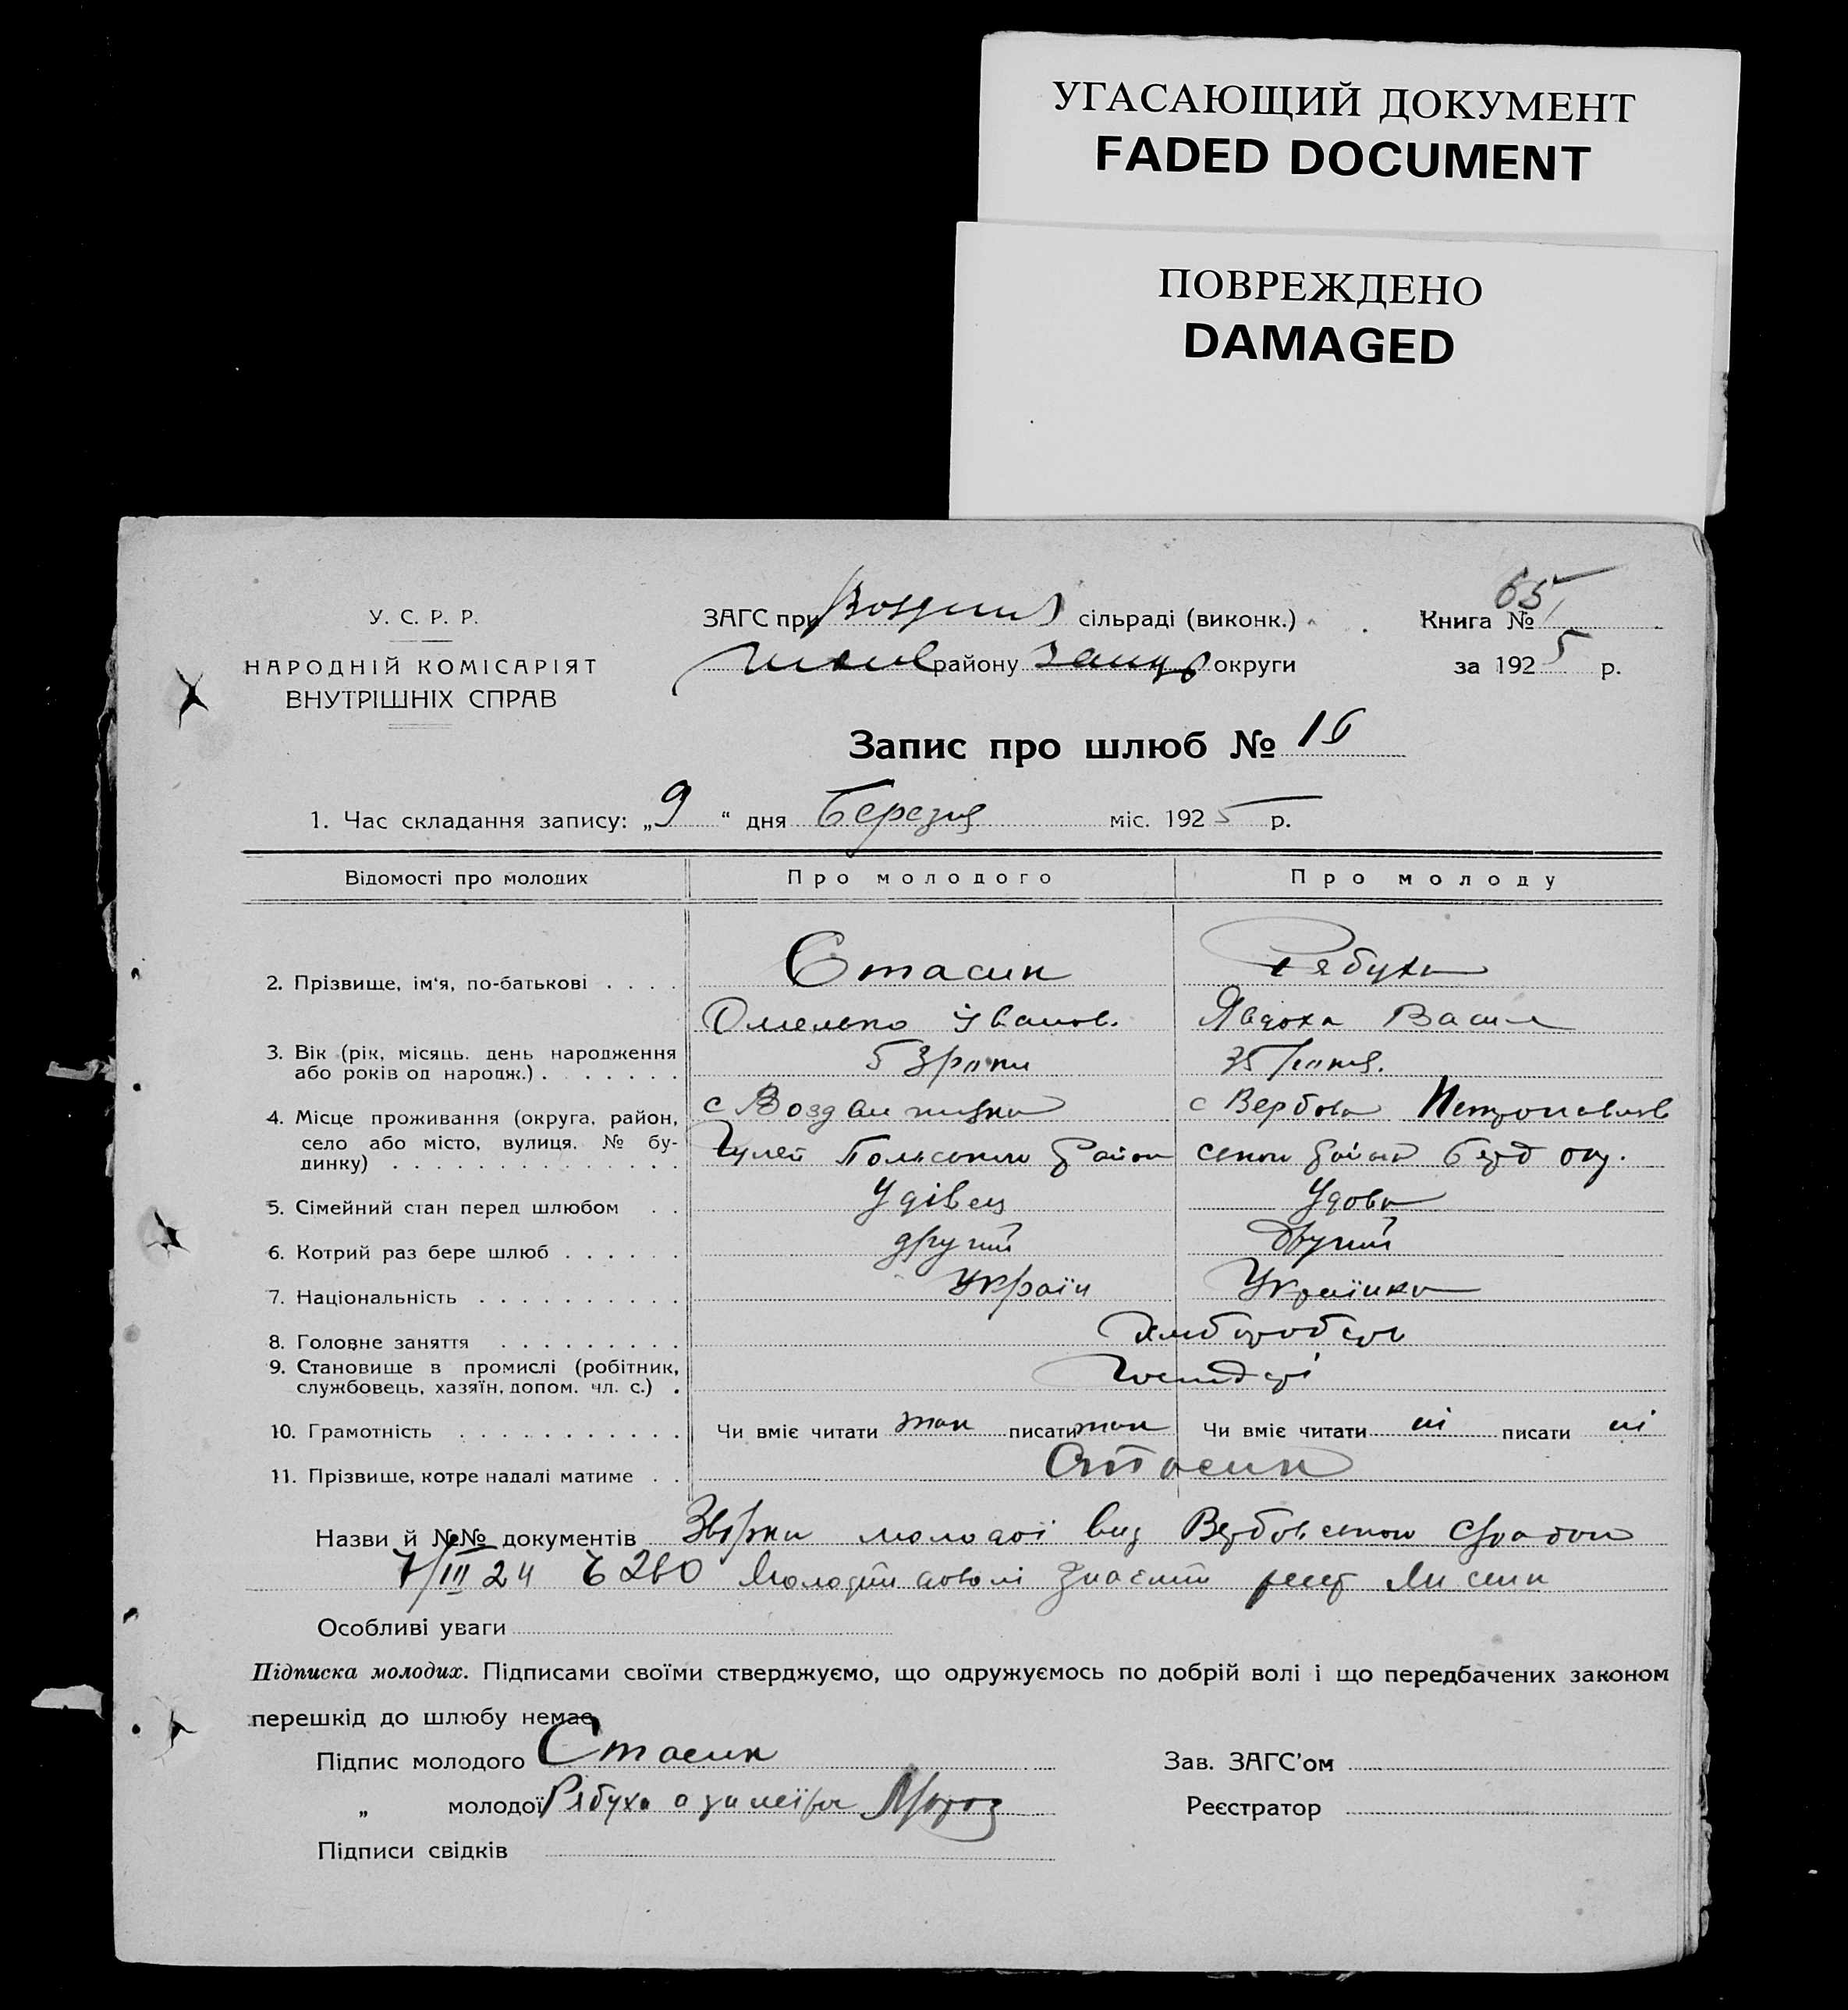 УГАСАЮЩИЙ ДОКУМЕНТ
FADED DOCUMENT
ПОВРЕЖДЕНО
DAMAGED
У. С. Р. Р.
НАРОДНІЙ КОМІСАРІЯТ
ВНУТРІШНІХ СПРАВ
ЗАГС при сільраді (виконк.)
району округи
Книга № 65
за 1925 р.
Запис про шлюб № 16
1. Час складання запису: „9“ дня Березня міс. 1925 р.
Відомості про молодих Про молодого Про молоду
2. Прізвище, ім'я, по-батькові Стасик Рябуха
Омелько Іванов. Явдоха Васил
3. Вік (рік, місяць, день народження або років од народж.) 53 роки 35 років.
4. Місце проживання (округа, район, село або місто, вулиця, № будинку) с Воздвижівка с Вербова Петропавлів
Гуляй Польського район ської район Берд окр.
5. Сімейний стан перед шлюбом Удівец Удова
6. Котрий раз бере шлюб другий другий
7. Національність Україн Українка
8. Головне заняття Хліборобство
9. Становище в промислі (робітник, службовець, хазяїн, допом. чл. с.) Господарі
10. Грамотність Чи вміє читати так писати так Чи вміє читати ні писати ні
11. Прізвище, котре надалі матиме Стасик
Назви й №№ документів молодої від Вербовської
7/III 24 № 280 Молодий
Особливі уваги
Підписка молодих. Підписами своїми стверджуємо, що одружуємось по добрій волі і що передбачених законом
перешкід до шлюбу немає
Підпис молодого Стасик Зав. ЗАГС'ом
„ молодої Рябуха а за неї Мороз Реєстратор
Підписи свідків